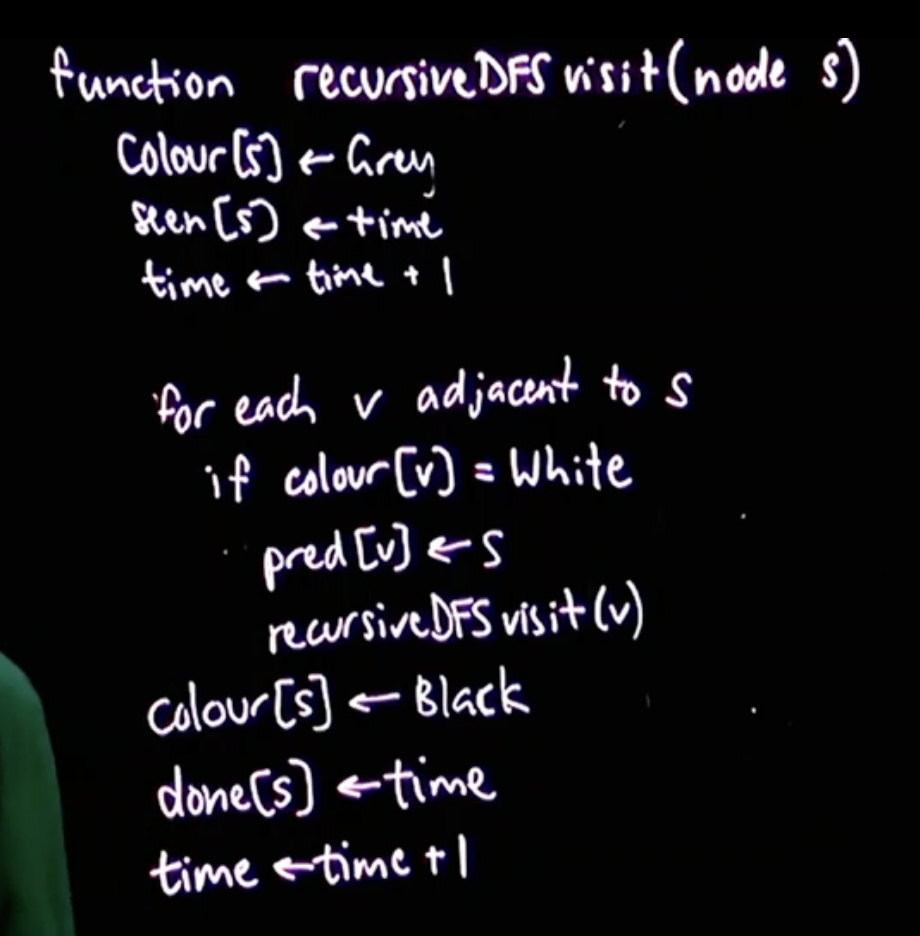 function recursiveDFSvisit(node s)
Colour[s] ← Grey
seen[s] ← time
time ← time + 1
for each v adjacent to s
if colour[v] = White
pred[v] ← s
recursiveDFSvisit(v)
colour[s] ← Black
done[s] ← time
time ← time + 1